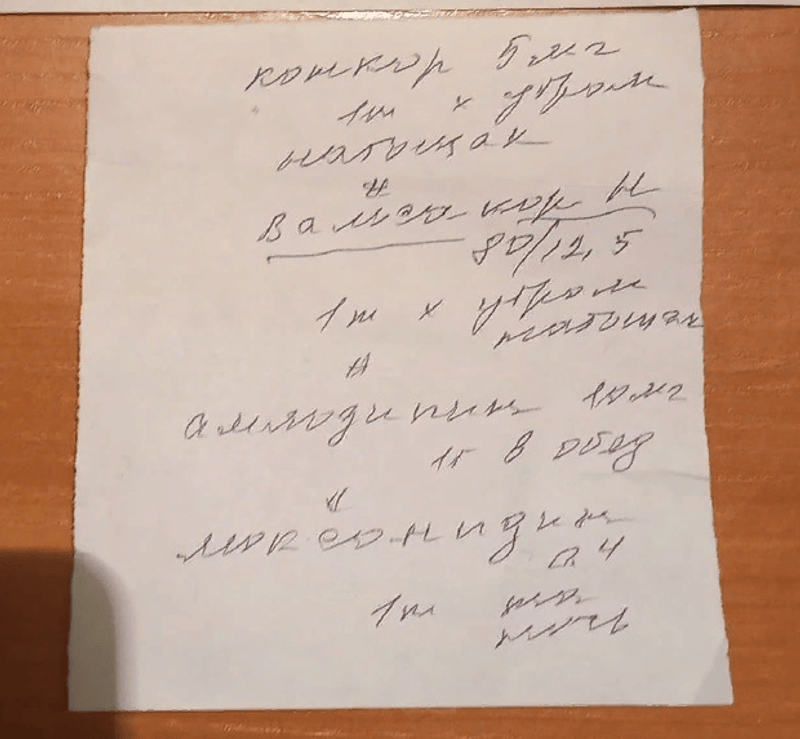 конкор 5мг
1т х утром
натощак
"
Валсакор Н
80/12,5
1т х утром
натощак
"
амлодипин 10мг
1т в обед
"
моксонидин
0.4
1т на
ночь